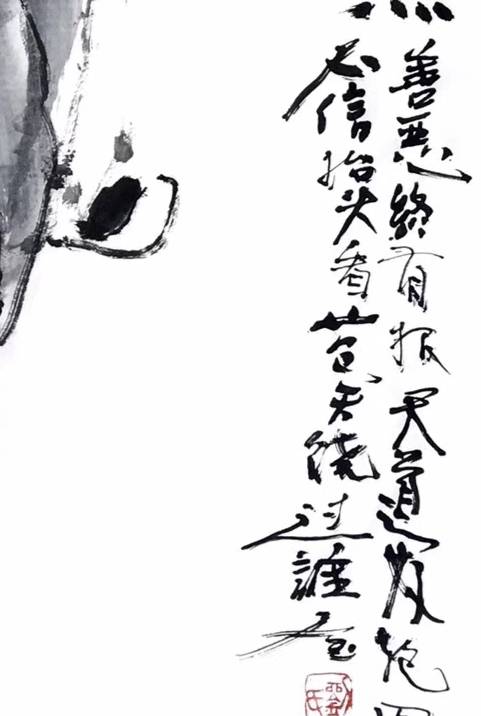 善恶終有报天道好轮回
不信抬头看苍天饶过誰